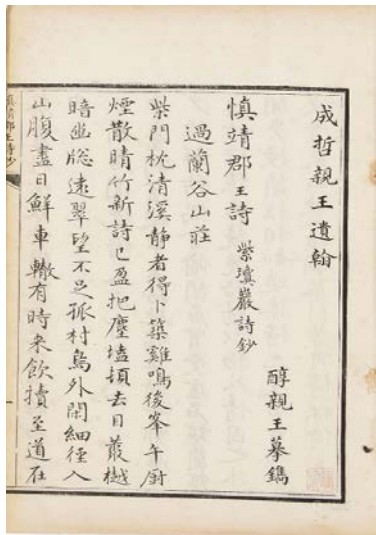 成哲親王遺翰
醇親王摹鐫
慎靖郡王詩 紫瓊巖詩鈔
過蘭谷山莊
柴門枕清溪靜者得卜築雞鳴後峯午廚
煙散晴竹新詩已盈把塵壒頓去目叢樾
暗幽牕遠翠望不足孤村鳥外閑細徑入
山腹盡日鮮車轍有時来飲犢至道在